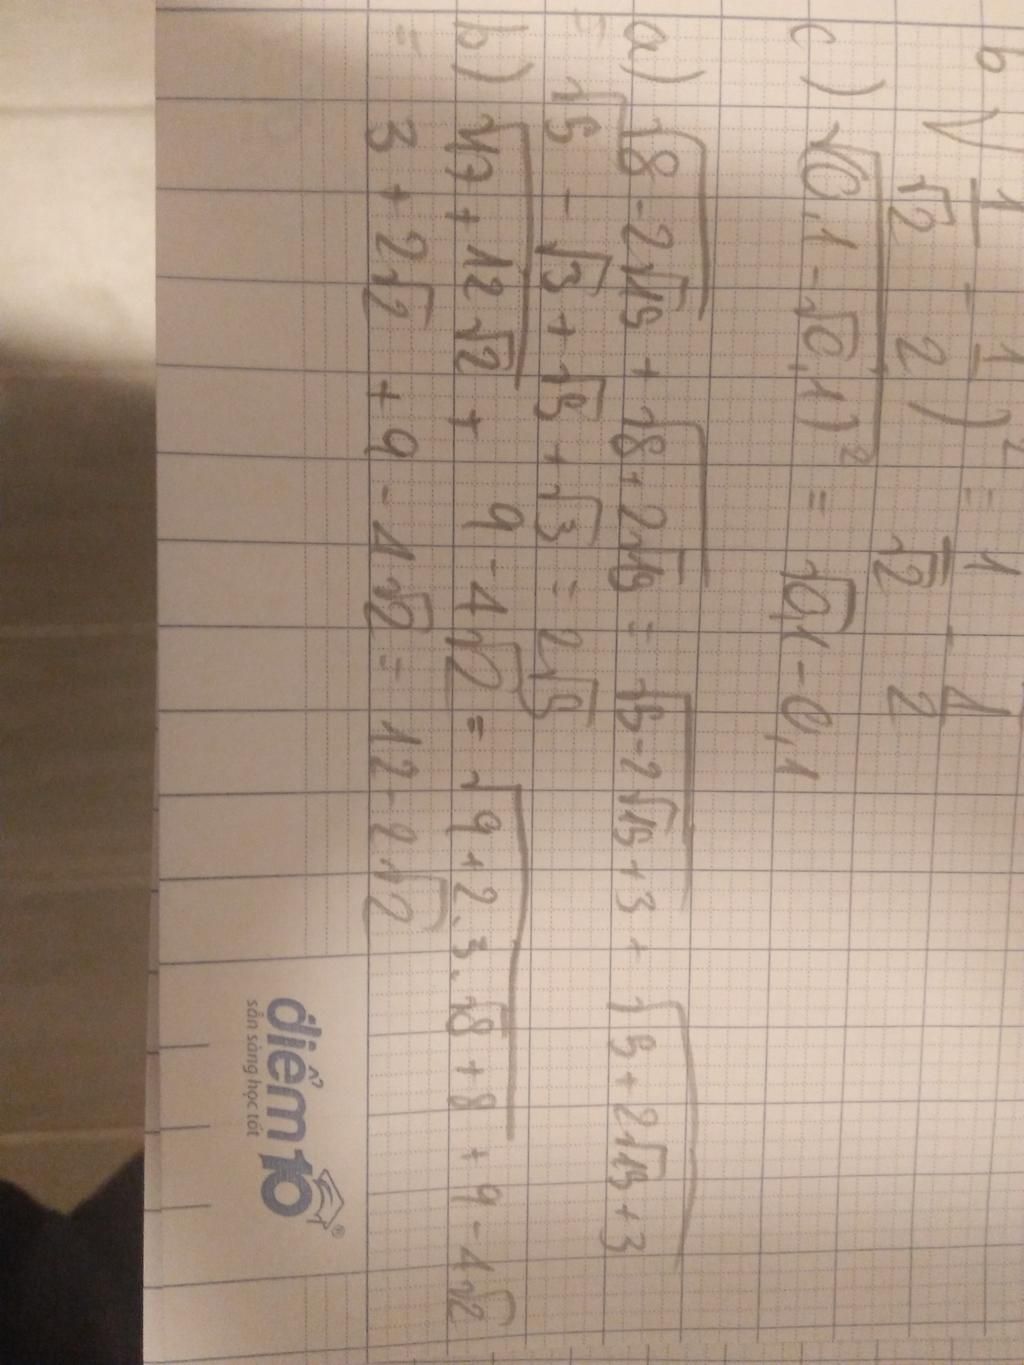 b) √(1/√2 - 1/2)² = 1/√2 - 1/2
c) √(0,1 - √0,1)² = √0,1 - 0,1
a) √8 - 2√15 + √8 + 2√15 = √5 - 2√15 + 3 + √5 + 2√15 + 3
= √5 - √3 + √5 + √3 = 2√5
b) √17 + 12√2 + 9 - 4√2 = √9 + 2.3.√8 + 8 + 9 - 4√2
= 3 + 2√2 + 9 - 4√2 = 12 - 2√2
điểm10®
sẵn sàng học tốt